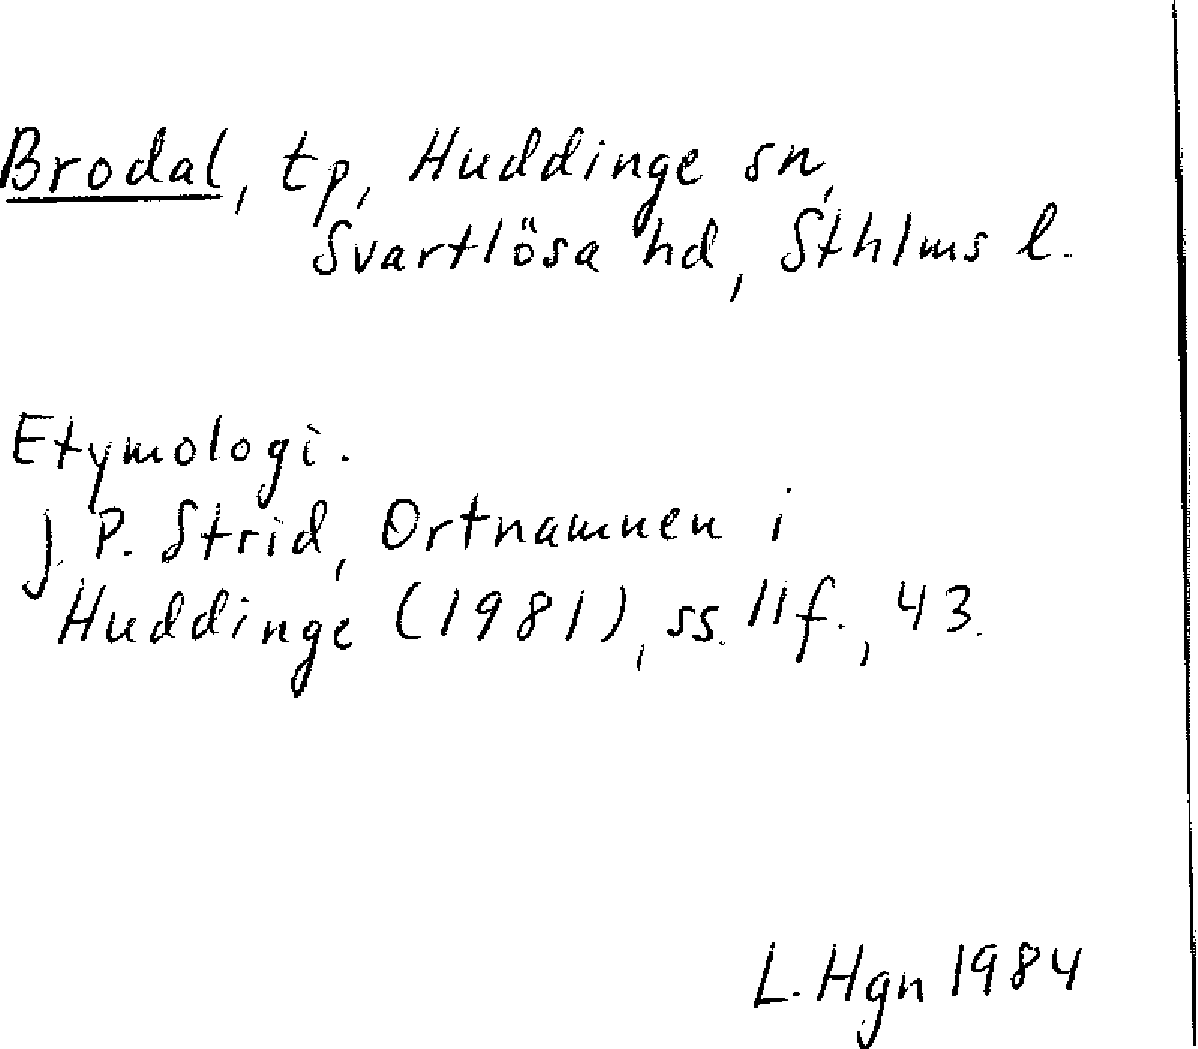 Brodal, tp, Huddinge sn,
Svartlösa hd, Sthlms l.
Etymologi.
J. P. Strid, Ortnamnen i
Huddinge (1981), ss. 11f., 43.
L. Hgn 1984